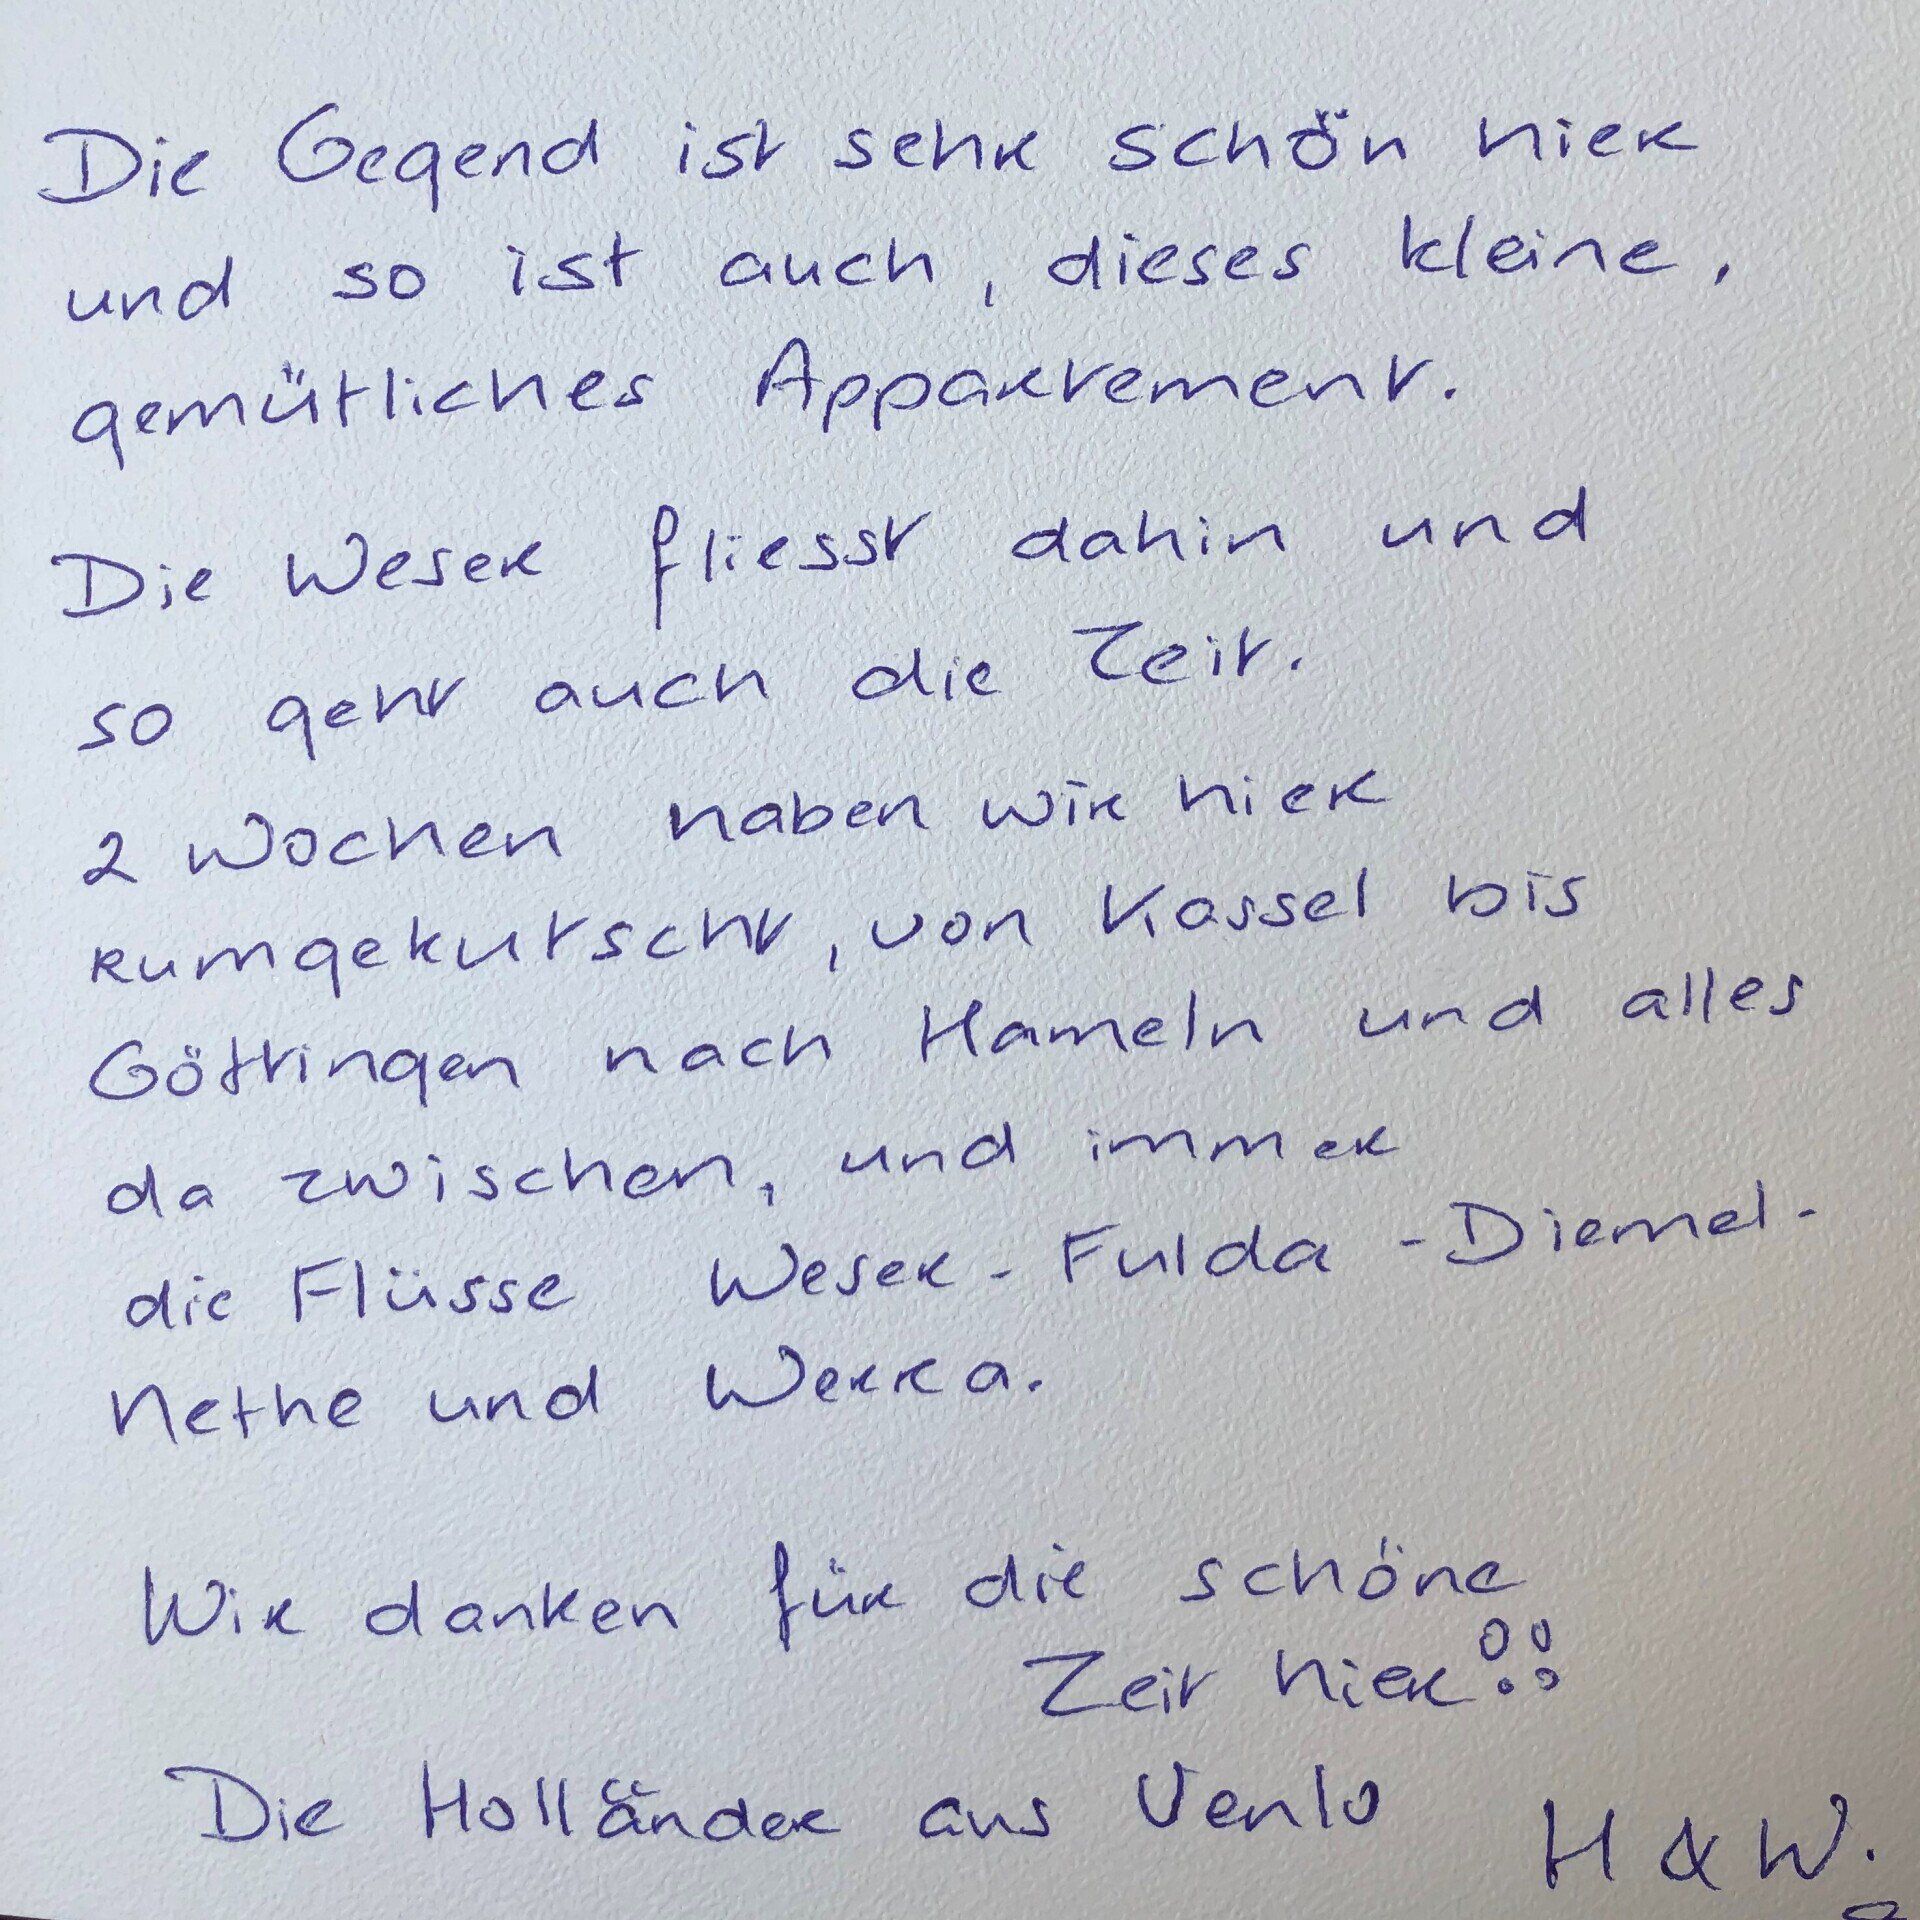 Die Gegend ist sehr schön hier
und so ist auch, dieses kleine,
gemütliches Appartement.
Die Weser fliesst dahin und
so geht auch die Zeit.
2 Wochen haben wir hier
rumgekutscht, von Kassel bis
Göttingen nach Hameln und alles
da zwischen, und immer
die Flüsse Weser - Fulda - Diemel -
Nethe und Werra.
Wir danken für die schöne
Zeit hier!!
Die Holländer aus Venlo
H & W.